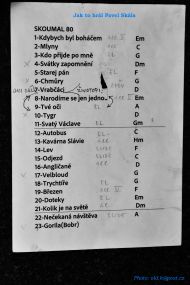 Jak to hrál Pavel Skála
SKOUMAL 80
1-Kdybych byl boháčem Em
2-Mlýny C
3-Kdo přijde po mně G
4-Svátky zapomnění Dm
5-Starej pán E
6-Chmúry G
7-Vrabčáci Dm
8-Narodíme se jen jednou Em
9-Tvé oči EL D
10-Tygr D
11-Svatý Václave EL Gm
12-Autobus C
13-Kavárna Slávie Hm
14-Lev F
15-Odjezd C
16-Angličané D
17-Velbloud G
18-Trychtíře EL G
19-Březen F
20-Doteky EL Em
21-Kolik je na světě Dm
22-Nečekaná návštěva A
23-Gorila(Bobr)